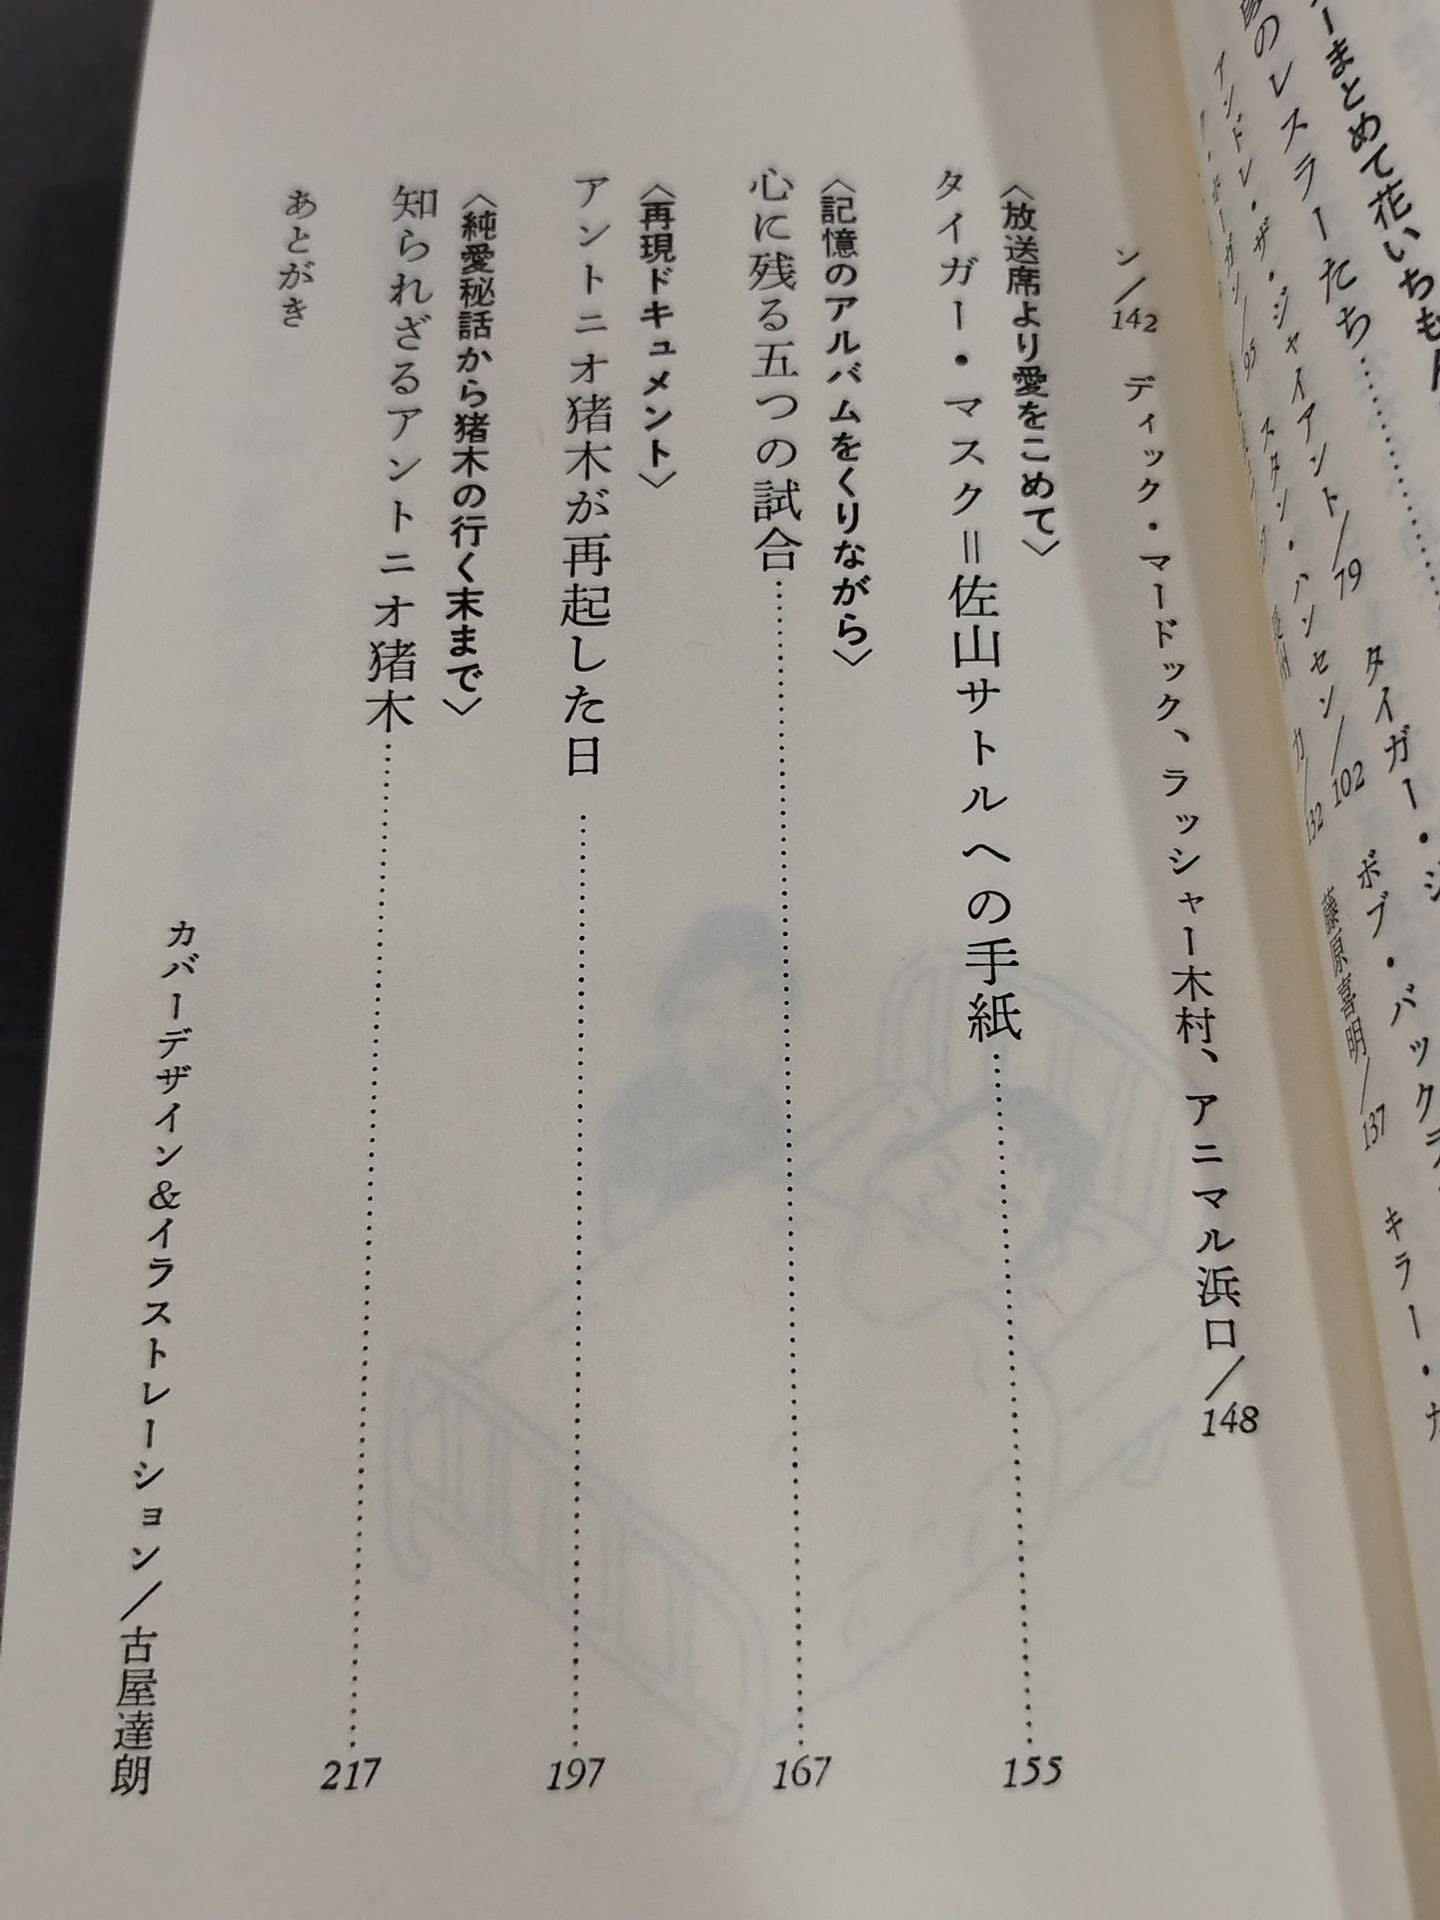 ーまとめて花いちも
のレスラーたち
アンドレ・ザ・ジャイアント／79 タイガー・ジ
／95 スタン・ハンセン／102 ボブ・バックラ
／132 藤原喜明／137 キラー・カ
ン／142 ディック・マードック、ラッシャー木村、アニマル浜口／148
〈放送席より愛をこめて〉
タイガー・マスク＝佐山サトルへの手紙……155
〈記憶のアルバムをくりながら〉
心に残る五つの試合……167
〈再現ドキュメント〉
アントニオ猪木が再起した日……197
〈純愛秘話から猪木の行く末まで〉
知られざるアントニオ猪木……217
あとがき
カバーデザイン＆イラストレーション／古屋達朗